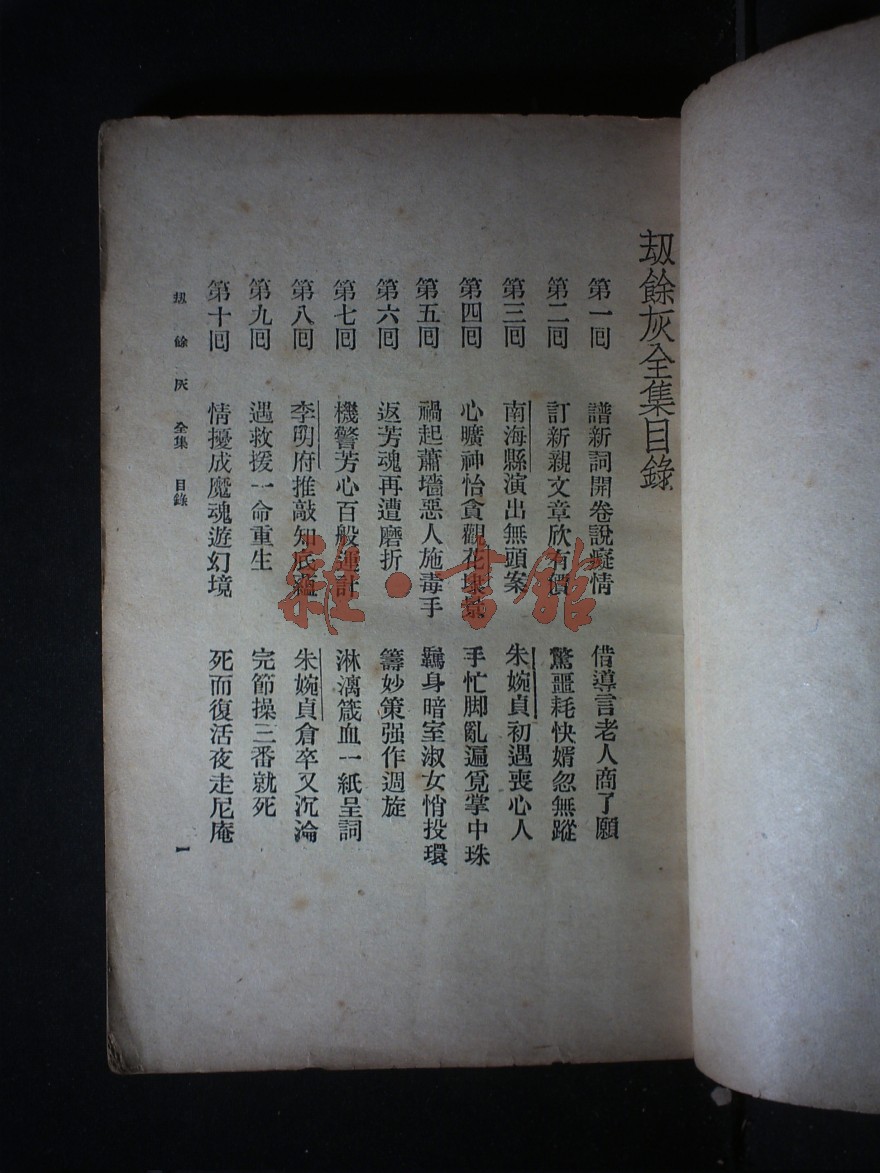 刼餘灰全集目錄
第一回 譜新詞開卷說癡情 借導言老人商了願
第二回 訂新親文章欣有價 驚噩耗快婿忽無蹤
第三回 南海縣演出無頭案 朱婉貞初遇喪心人
第四回 心曠神怡貪觀花埭景 手忙脚亂遍覓掌中珠
第五回 禍起蕭墻惡人施毒手 羈身暗室淑女悄投環
第六回 返芳魂再遭磨折 籌妙策强作週旋
第七回 機警芳心百般運計 淋漓箴血一紙呈詞
第八回 李明府推敲知底蘊 朱婉貞倉卒又沉淪
第九回 遇救援一命重生 完節操三番就死
第十回 情擾成魔魂遊幻境 死而復活夜走尼庵
刼餘灰 全集 目錄 一
雜·書館